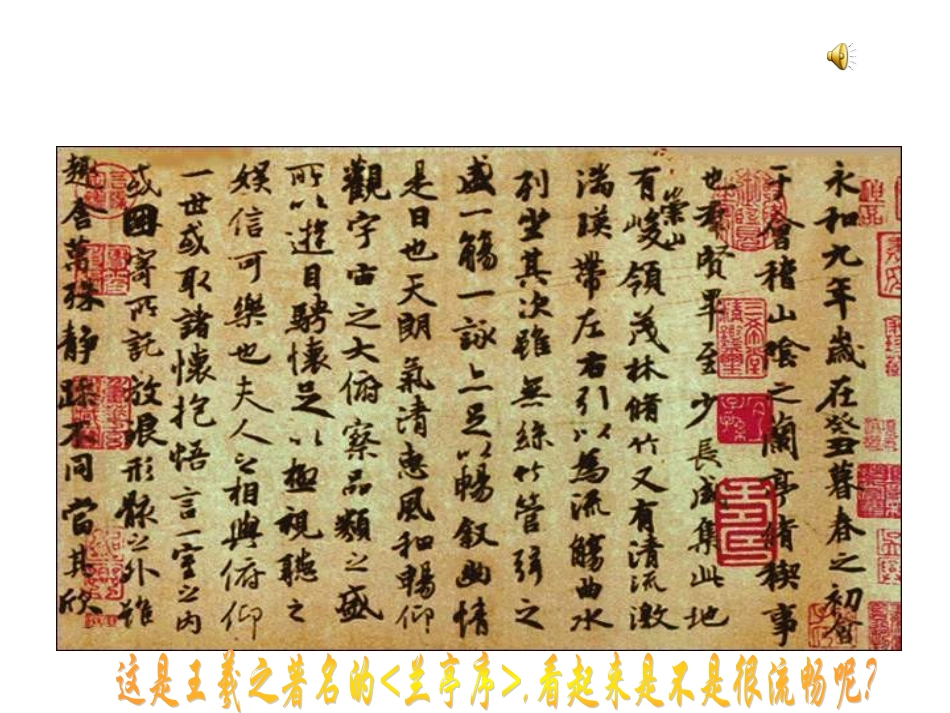 永和九年歲在癸丑暮春之初會
于會稽山陰之蘭亭脩稧事
也羣賢畢至少長咸集此地
有崇山峻領茂林脩竹又有清流激
湍暎帶左右引以為流觴曲水
列坐其次雖無絲竹管弦之
盛一觴一詠上足以暢叙幽情
是日也天朗氣清惠風和暢仰
觀宇宙之大俯察品類之盛
所以遊目騁懷足以極視聽之
娛信可樂也夫人之相與俯仰
一世或取諸懷抱悟言一室之內
或因寄所託放浪形骸之外雖
趣舍萬殊靜躁不同當其欣
这是王羲之著名的<兰亭序>,看起来是不是很流畅呢?